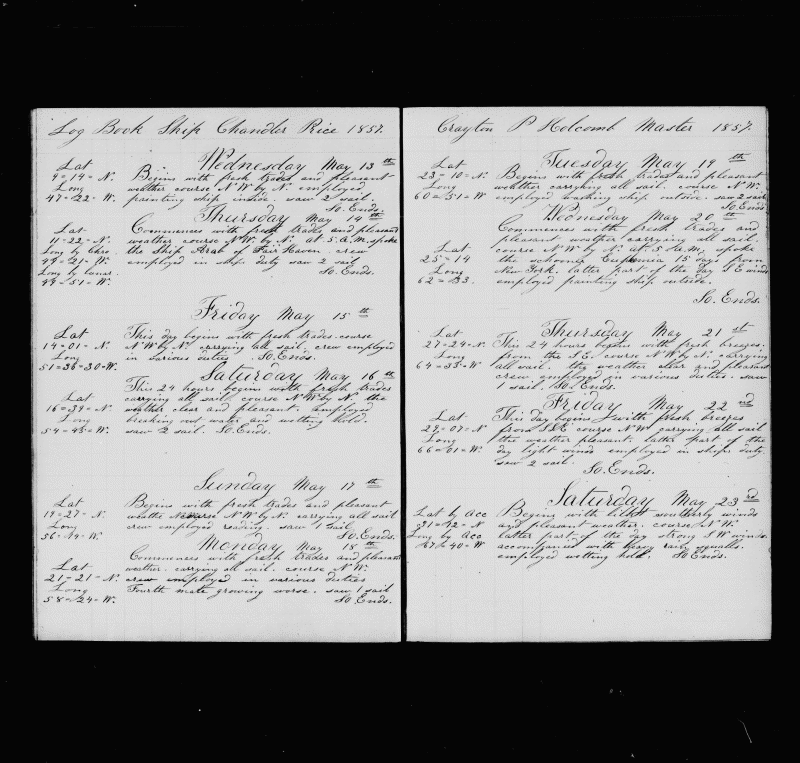 Log Book Ship Chandler Rice 1857.
Wednesday May 13th
Lat
9=14=N. Begins with fresh trades and pleasant
Long weather course N W by N. employed
47=22=W. painting ship inside. saw 2 sail
So. Ends.
Thursday May 14th
Lat Commences with fresh trades and pleasant
11=22=N. weather course N W by N. at 5. A. M. spoke
Long by Chro. the Ship Arab of Fair Haven. crew
49=21=W. employed in ship duty saw 2 sail
Long by lunar. So. Ends.
49=51=W.
Friday May 15th
Lat This day begins with fresh trades. course
14=01=N. N W by N. carrying all sail. crew employed
Long in various duties. So. Ends.
51=36=30=W.
Saturday May 16th
This 24 hours begins with fresh trades
Lat carrying all sail course N W by N. the
16=39=N. weather clear and pleasant. employed
Long breaking out water and wetting hold.
54=43=W. saw 2 sail. So. Ends.
Sunday May 17th
Lat Begins with fresh trades and pleasant
19=27=N. course N W by N. carrying all sail
Long crew employed reading. saw 1 sail
56=14=W. So. Ends.
Monday May 18th
Commences with fresh trades and pleasant
Lat weather. carrying all sail. course N W.
21=21=N. crew employed in various duties
Long Fourth mate growing worse. saw 1 sail
58=24=W. So. Ends.
Crayton P Holcomb Master 1857.
Tuesday May 19th
Lat
23=10=N. Begins with fresh trades and pleasant
Long weather carrying all sail. course N W.
60=51=W employed washing ship outside. saw 2 sail
So Ends.
Wednesday May 20th
Commences with fresh trades and
pleasant weather carrying all sail.
Lat course N W by N. at 5. A. M. spoke
25=14 the schooner 15 days from
Long New York. latter part of the day S E winds
62=33. employed painting ship outside.
So. Ends.
Thursday May 21st
Lat
27=24=N. This 24 hours begin with fresh breezes
Long from the S. E. course N W by N. carrying
64=33=W all sail. the weather clear and pleasant
crew employed in various duties. saw
1 sail. So. Ends.
Friday May 22nd
Lat This day begins with fresh breezes
29=07=N. from S S E course N W carrying all sail
Long the weather pleasant. latter part of the
66=01=W. day light winds employed in ships duty
saw 2 sail.
So. Ends.
Saturday May 23rd
Lat by Acc Begins with light southerly winds
31=12=N and pleasant weather. course N W.
Long by Acc latter part of the day strong S W winds
67=40=W accompanied with heavy rainy squalls.
employed wetting hold. So. Ends.